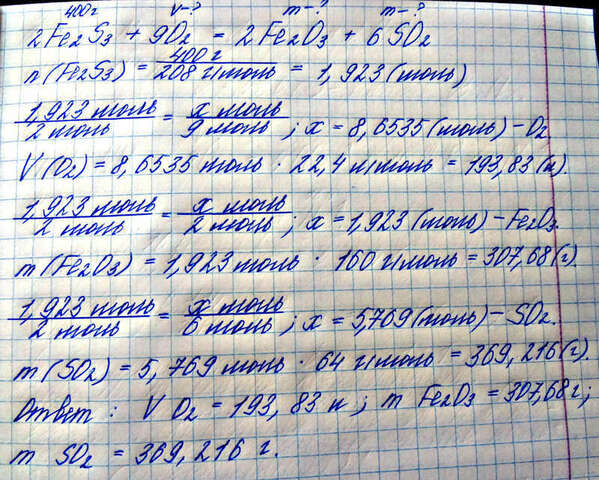 400г V-? m-? m-?
2Fe2S3 + 9O2 = 2Fe2O3 + 6SO2
n(Fe2S3) = 400 г / 208 г/моль = 1,923 (моль)
1,923 моль / 2 моль = x моль / 9 моль ; x = 8,6535 (моль) - O2
V(O2) = 8,6535 моль · 22,4 л/моль = 193,83 (л).
1,923 моль / 2 моль = x моль / 2 моль ; x = 1,923 (моль) - Fe2O3.
m(Fe2O3) = 1,923 моль · 160 г/моль = 307,68 (г).
1,923 моль / 2 моль = x моль / 6 моль ; x = 5,769 (моль) - SO2.
m(SO2) = 5,769 моль · 64 г/моль = 369,216 (г).
Ответ : V O2 = 193,83 л ; m Fe2O3 = 307,68 г ;
m SO2 = 369,216 г.